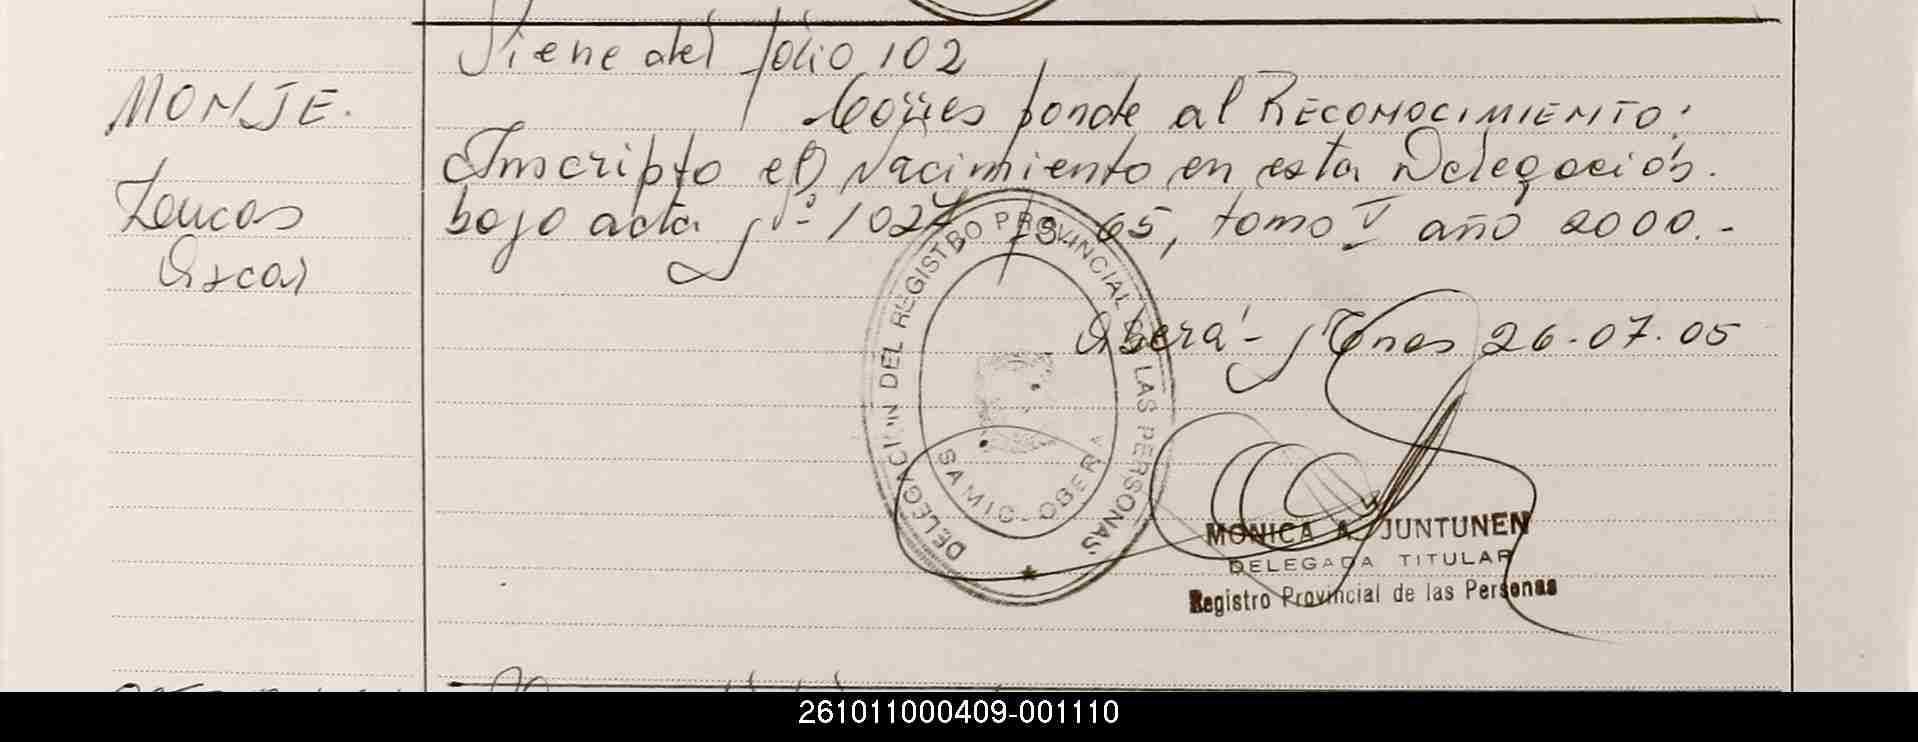 Viene del folio 102
MONJE.
Corresponde al RECONOCIMIENTO:
Inscripto el Nacimiento en esta Delegación.
Loucas
bajo acta Nº 1027 fs 65, tomo V año 2000.-
Oscar
Oberá - Mnes 26-07-05
DELEGACION DEL REGISTRO PROVINCIAL LAS PERSONAS
SAMIC - OBERA
MONICA A. JUNTUNEN
DELEGADA TITULAR
Registro Provincial de las Personas
261011000409-001110